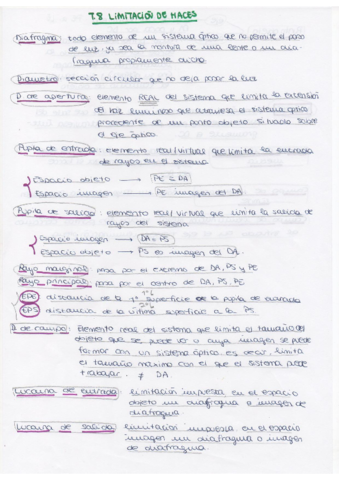 T.8 LIMITACIÓN DE HACES
Diafragma: todo elemento de un sistema óptico que no permite el paso
de luz, ya sea la montura de una lente o un dia-
fragma propiamente dicho
Diámetro: sección circular que no deja pasar la luz
D. de apertura: elemento REAL del sistema que limita la extensión
del haz luminoso que atraviesa el sistema óptico
procedente de un punto objeto situado sobre
el eje óptico.
Pupila de entrada: elemento real/virtual que limita la entrada
de rayos en el sistema
Espacio objeto → PE ≡ DA
Espacio imagen → PE imagen del DA
Pupila de salida: elemento real/virtual que limita la salida de
rayos del sistema
Espacio imagen → DA = PS
Espacio objeto → PS es imagen del DA.
Rayo marginal: pasa por el extremo de DA, PS y PE
Rayo principal: pasa por el centro de DA, PS, PE
EPE distancia de la 1ª superficie de la pupila de entrada
EPS distancia de la última superficie a la PS
D. de campo: Elemento real del sistema que limita el tamaño del
objeto que se puede ver o cuya imagen se puede
formar con un sistema óptico, es decir, limita
el tamaño máximo con el que el sistema puede
trabajar. ≠ DA
Lucarna de entrada: limitación impuesta en el espacio
objeto un diafragma o imagen de
diafragma.
Lucarna de salida: limitación impuesta en el espacio
imagen un diafragma o imagen
de diafragma.